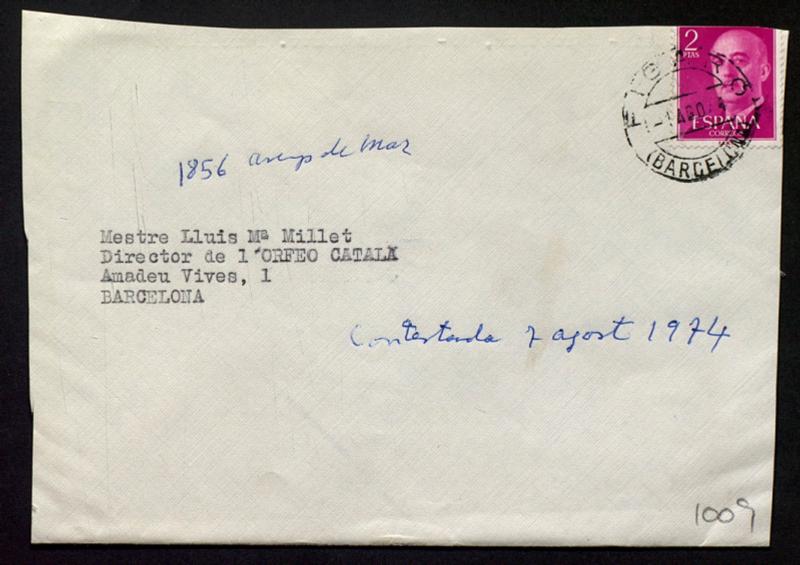 2
PTAS
ESPAÑA
CORREOS
AGO
(BARCELONA)
1856 Arenys de Mar
Mestre Lluis Mª Millet
Director de l'ORFEO CATALA
Amadeu Vives, 1
BARCELONA
Contestada 7 agost 1974
1009